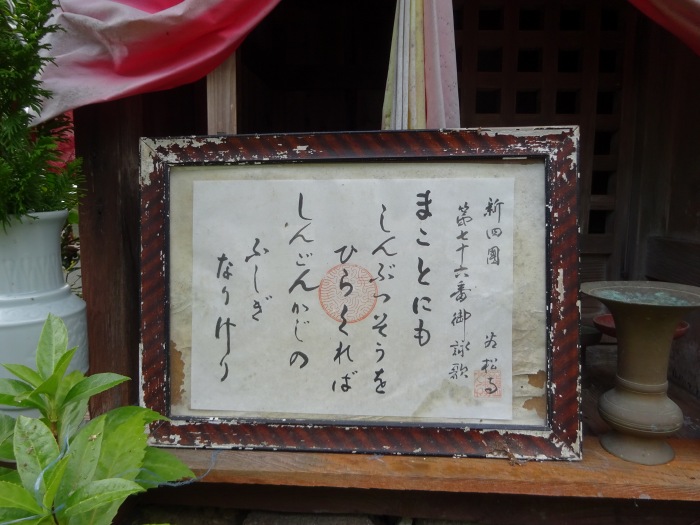 新四國
第七十六番御詠歌
若松寺
まことにも
しんぶつそうを
ひらくれば
しんごんかじの
ふしぎ
なりけり